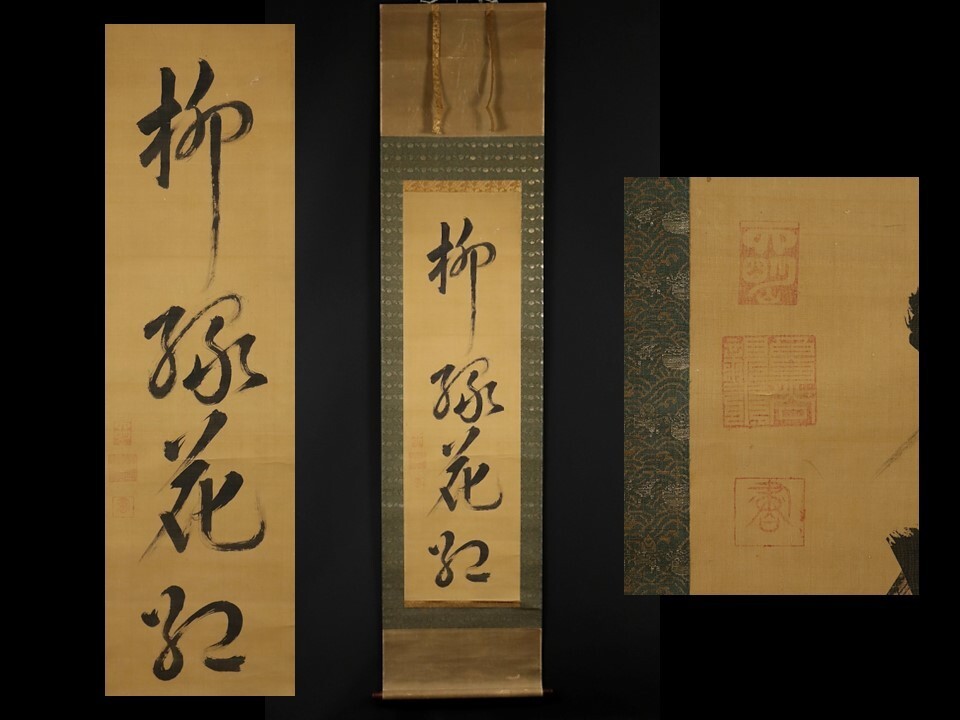 柳緑花紅
柳緑花紅
書